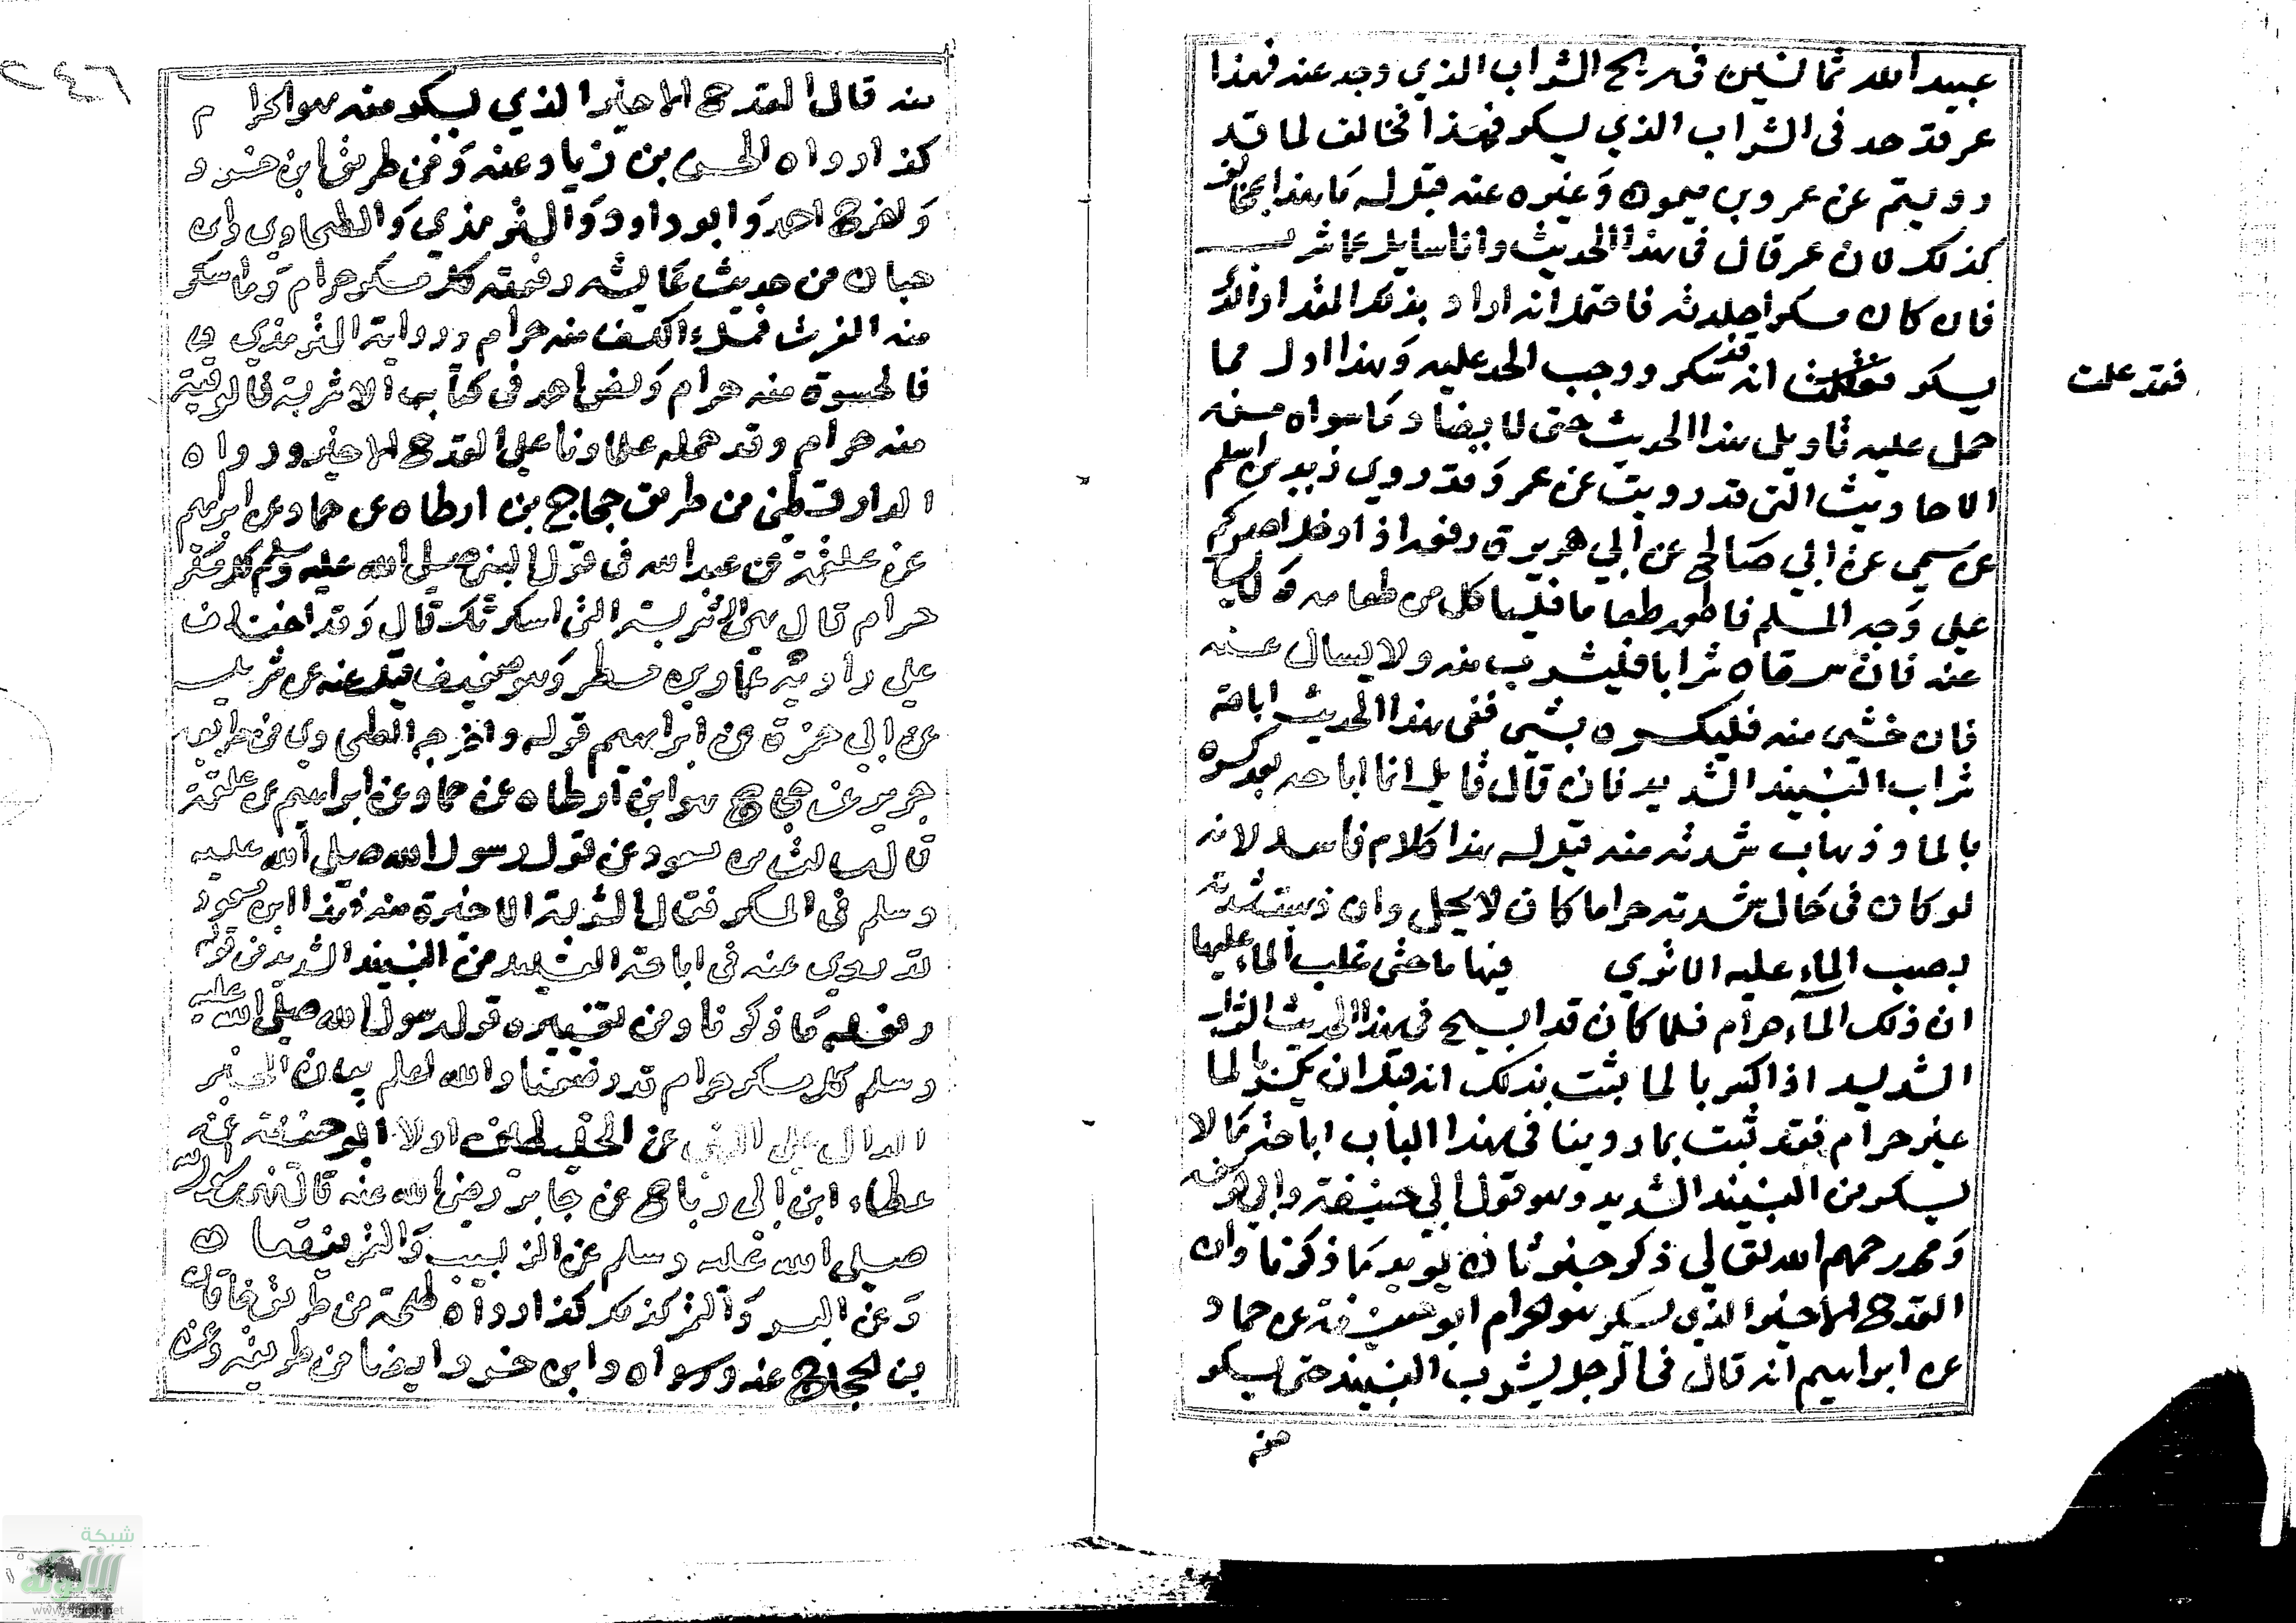 عبيد الله ثمانين في ريح الشراب الذي وجد عنه فهذا
عمر قد حد في الشراب الذي يسكر فهذا مخالف لما قد
رويتم عن عمرو بن ميمون وغيره عنه قيل له ما هذا بمخالف
كذلك لان عمر قال في هذا الحديث وانا سايل عما شرب
فان كان مسكرا جلدته فاحتمل انه اراد بذلك المقدار الذي
يسكر فقد علمت انه قد سكر ووجب الحد عليه وهذا اولى مما
فقد علمت
حمل عليه تاويل هذا الحديث حتى لا يضاد ما سواه من
الاحاديث التي قد رويت عن عمر وقد روى زيد بن اسلم
عن سمي عن ابي صالح عن ابي هريرة رفعه اذا دخل احدكم
على وجه المسلم فاطعمه طعاما فلياكل من طعامه ولا يسال
عنه فان سقاه شرابا فليشرب منه ولا يسال عنه
فان خشي منه فليكسره بشي ففي هذا الحديث اباحة
شراب النبيذ الشديد فان قال قايل انما اباحه بعد كسره
بالما وذهاب شدته منه قيل له هذا كلام فاسد لانه
لو كان في حال شدته حراما كان لا يحل وان ذهبت شدته
بصب الماء عليه الا ترى فيها ما حتى غلب الماء عليها
ان ذلك الماء حرام فلما كان قد ابيح في هذا الحديث الشراب
الشديد اذا كسر بالما ثبت بذلك انه قبل ان يكسر بالما
غير حرام فقد ثبت بما روينا في هذا الباب اباحة ما لا
يسكر من النبيذ الشديد وهو قول ابي حنيفة وابي يوسف
ومحمد رحمهم الله تعالى ذكر خبر ثان يويد ما ذكرنا وان
القدح الاخير الذي يسكر هو الحرام ابو حنيفة عن حماد
عن ابراهيم انه قال في الرجل يشرب النبيذ حتى يسكر
منه
٢٤٦
منه قال القدح الاخير الذي يسكر منه هو الحرام
كذا رواه الحسن بن زياد عنه ومن طريق ابن خسرو
واخرج احمد وابو داود والترمذي والطحاوي وابن
حبان من حديث عايشة رفعته كل مسكر حرام وما اسكر
منه الفرق فملء الكف منه حرام ورواية الترمذي
فالحسوة منه حرام ولفظ احمد في كتاب الاشربة فالوقية
منه حرام وقد حمله علماونا على القدح الاخير ورواه
الدارقطني من طريق حجاج بن ارطاه عن حماد عن ابراهيم
عن علقمة عن عبد الله في قول النبي صلى الله عليه وسلم كل مسكر
حرام قال هي الشربة التي اسكرتك قال وقد اختلف
على راويه عمار بن مطر وهو ضعيف قيل عنه عن شريك
عن ابي حمزة عن ابراهيم قوله واخرجه الطحاوي من طريق
جرير عن حجاج هو ابن ارطاه عن حماد عن ابراهيم عن علقمة
قال سالت بن مسعود عن قول رسول الله صلى الله عليه
وسلم في المسكر فقال الشربة الاخيرة منه فهذا ابن مسعود
قد روى عنه في اباحة الشديد من النبيذ الشديد من قوله
وفعله ما ذكرنا ومن تفسيره قول رسول الله صلى الله عليه
وسلم كل مسكر حرام قد وضعنا والله اعلم بيان الخبر
الدال على النهي عن الخليطين اولا ابو حنيفة عن
عطاء ابن ابي رباح عن جابر رضي الله عنه قال نهى رسول الله
صلى الله عليه وسلم عن الزبيب والتمر نقيعا
وعن البسر والتمر كذلك كذا رواه طلحة من طريق خاقان
بن الحجاج عنه ورواه وابن خسرو ايضا من طريقه وعن
شبكة
الألوكة
www.alukah.net